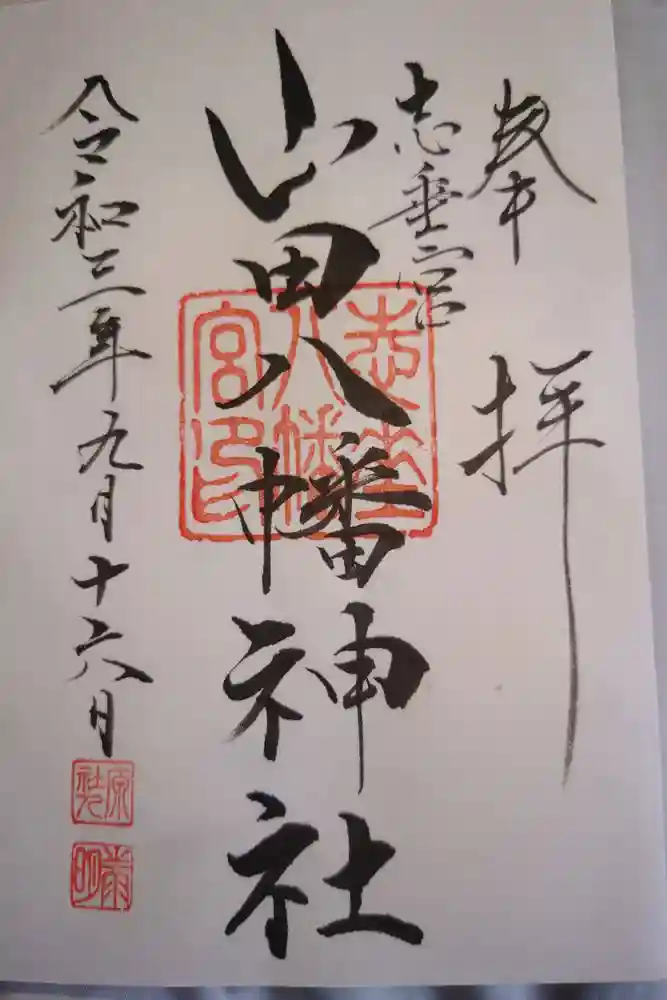 奉拝
志垂宮
山田八幡神社
志垂八幡宮印
令和三年九月十六日